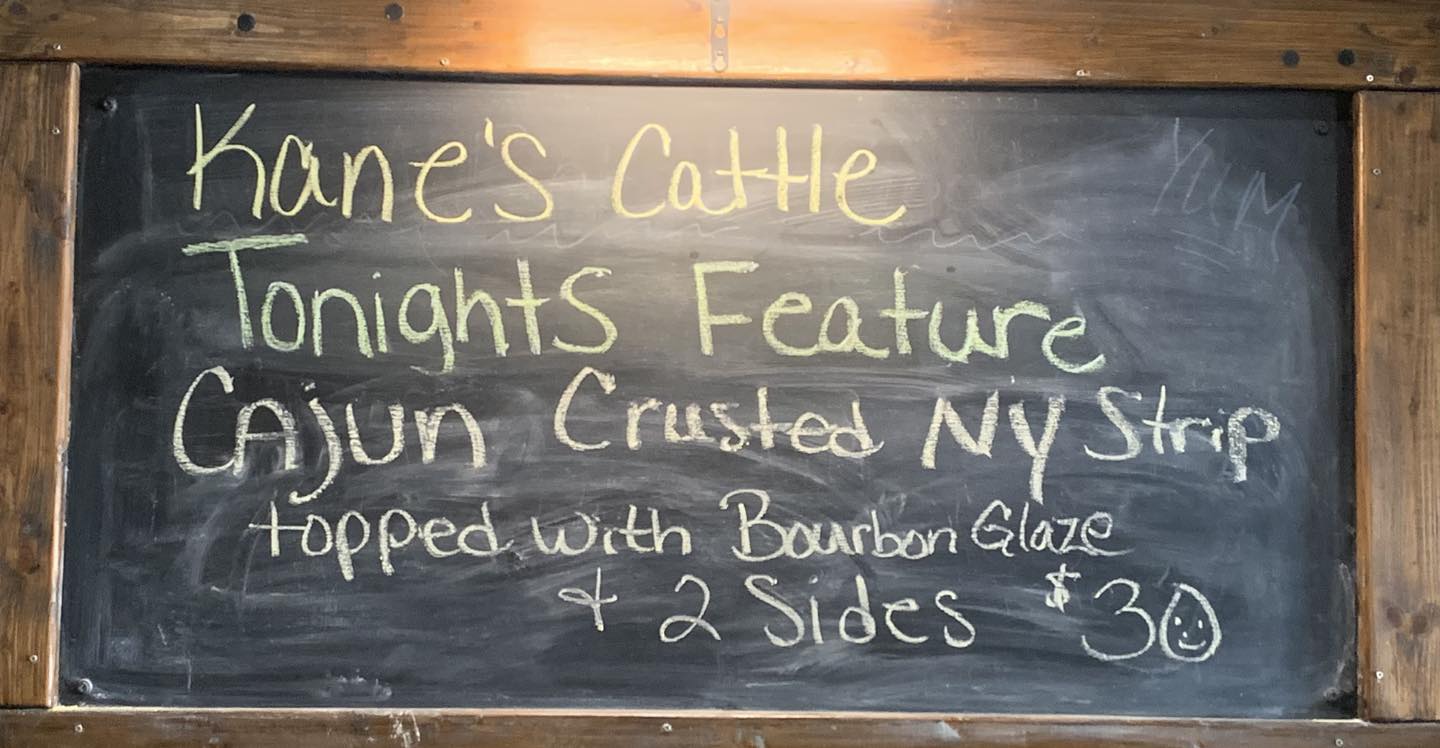 Kane's Cattle
YUM
Tonights Feature
CAjun Crusted NY Strip
topped with Bourbon Glaze
& 2 Sides $30